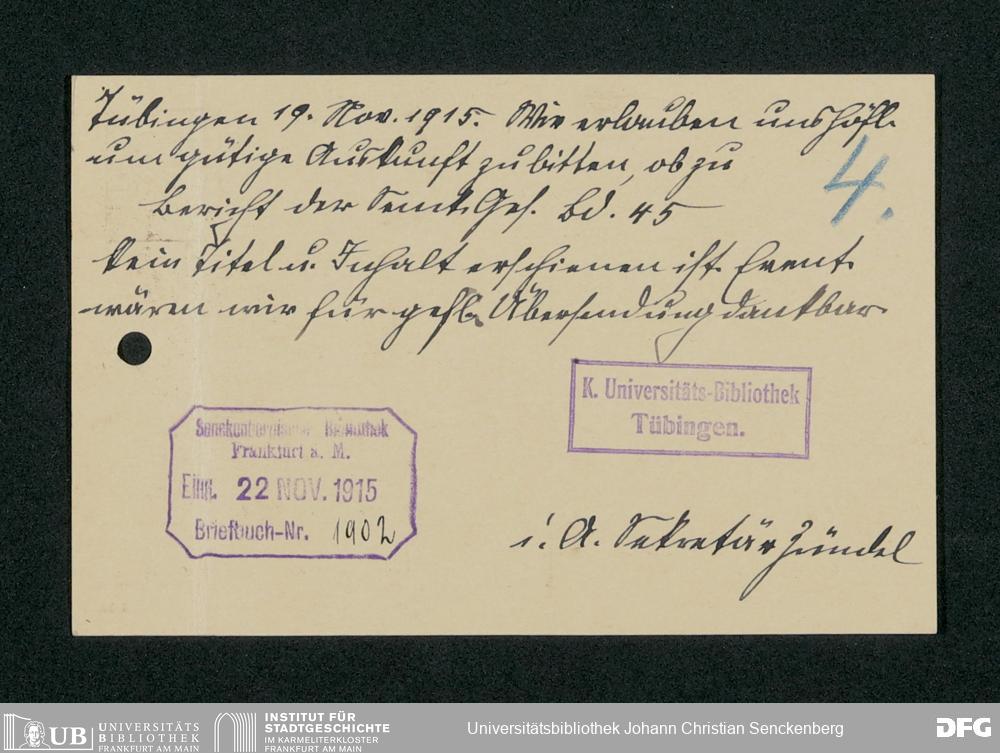 Tübingen 19. Nov. 1915. Wir erlauben uns höfl.
um gütige Auskunft zu bitten, ob zu
Bericht der Senck. Ges. Bd. 45
kein Titel u. Inhalt erschienen ist. Event.
wären wir für gefl. Übersendung dankbar.
4.
K. Universitäts-Bibliothek
Tübingen.
Senckenbergische Bibliothek
Frankfurt a. M.
Eing. 22 NOV. 1915
Briefbuch-Nr. 1902
i. A. Sekretär Zündel
UB UNIVERSITÄTS
BIBLIOTHEK
FRANKFURT AM MAIN
INSTITUT FÜR
STADTGESCHICHTE
IM KARMELITERKLOSTER
FRANKFURT AM MAIN
Universitätsbibliothek Johann Christian Senckenberg
DFG